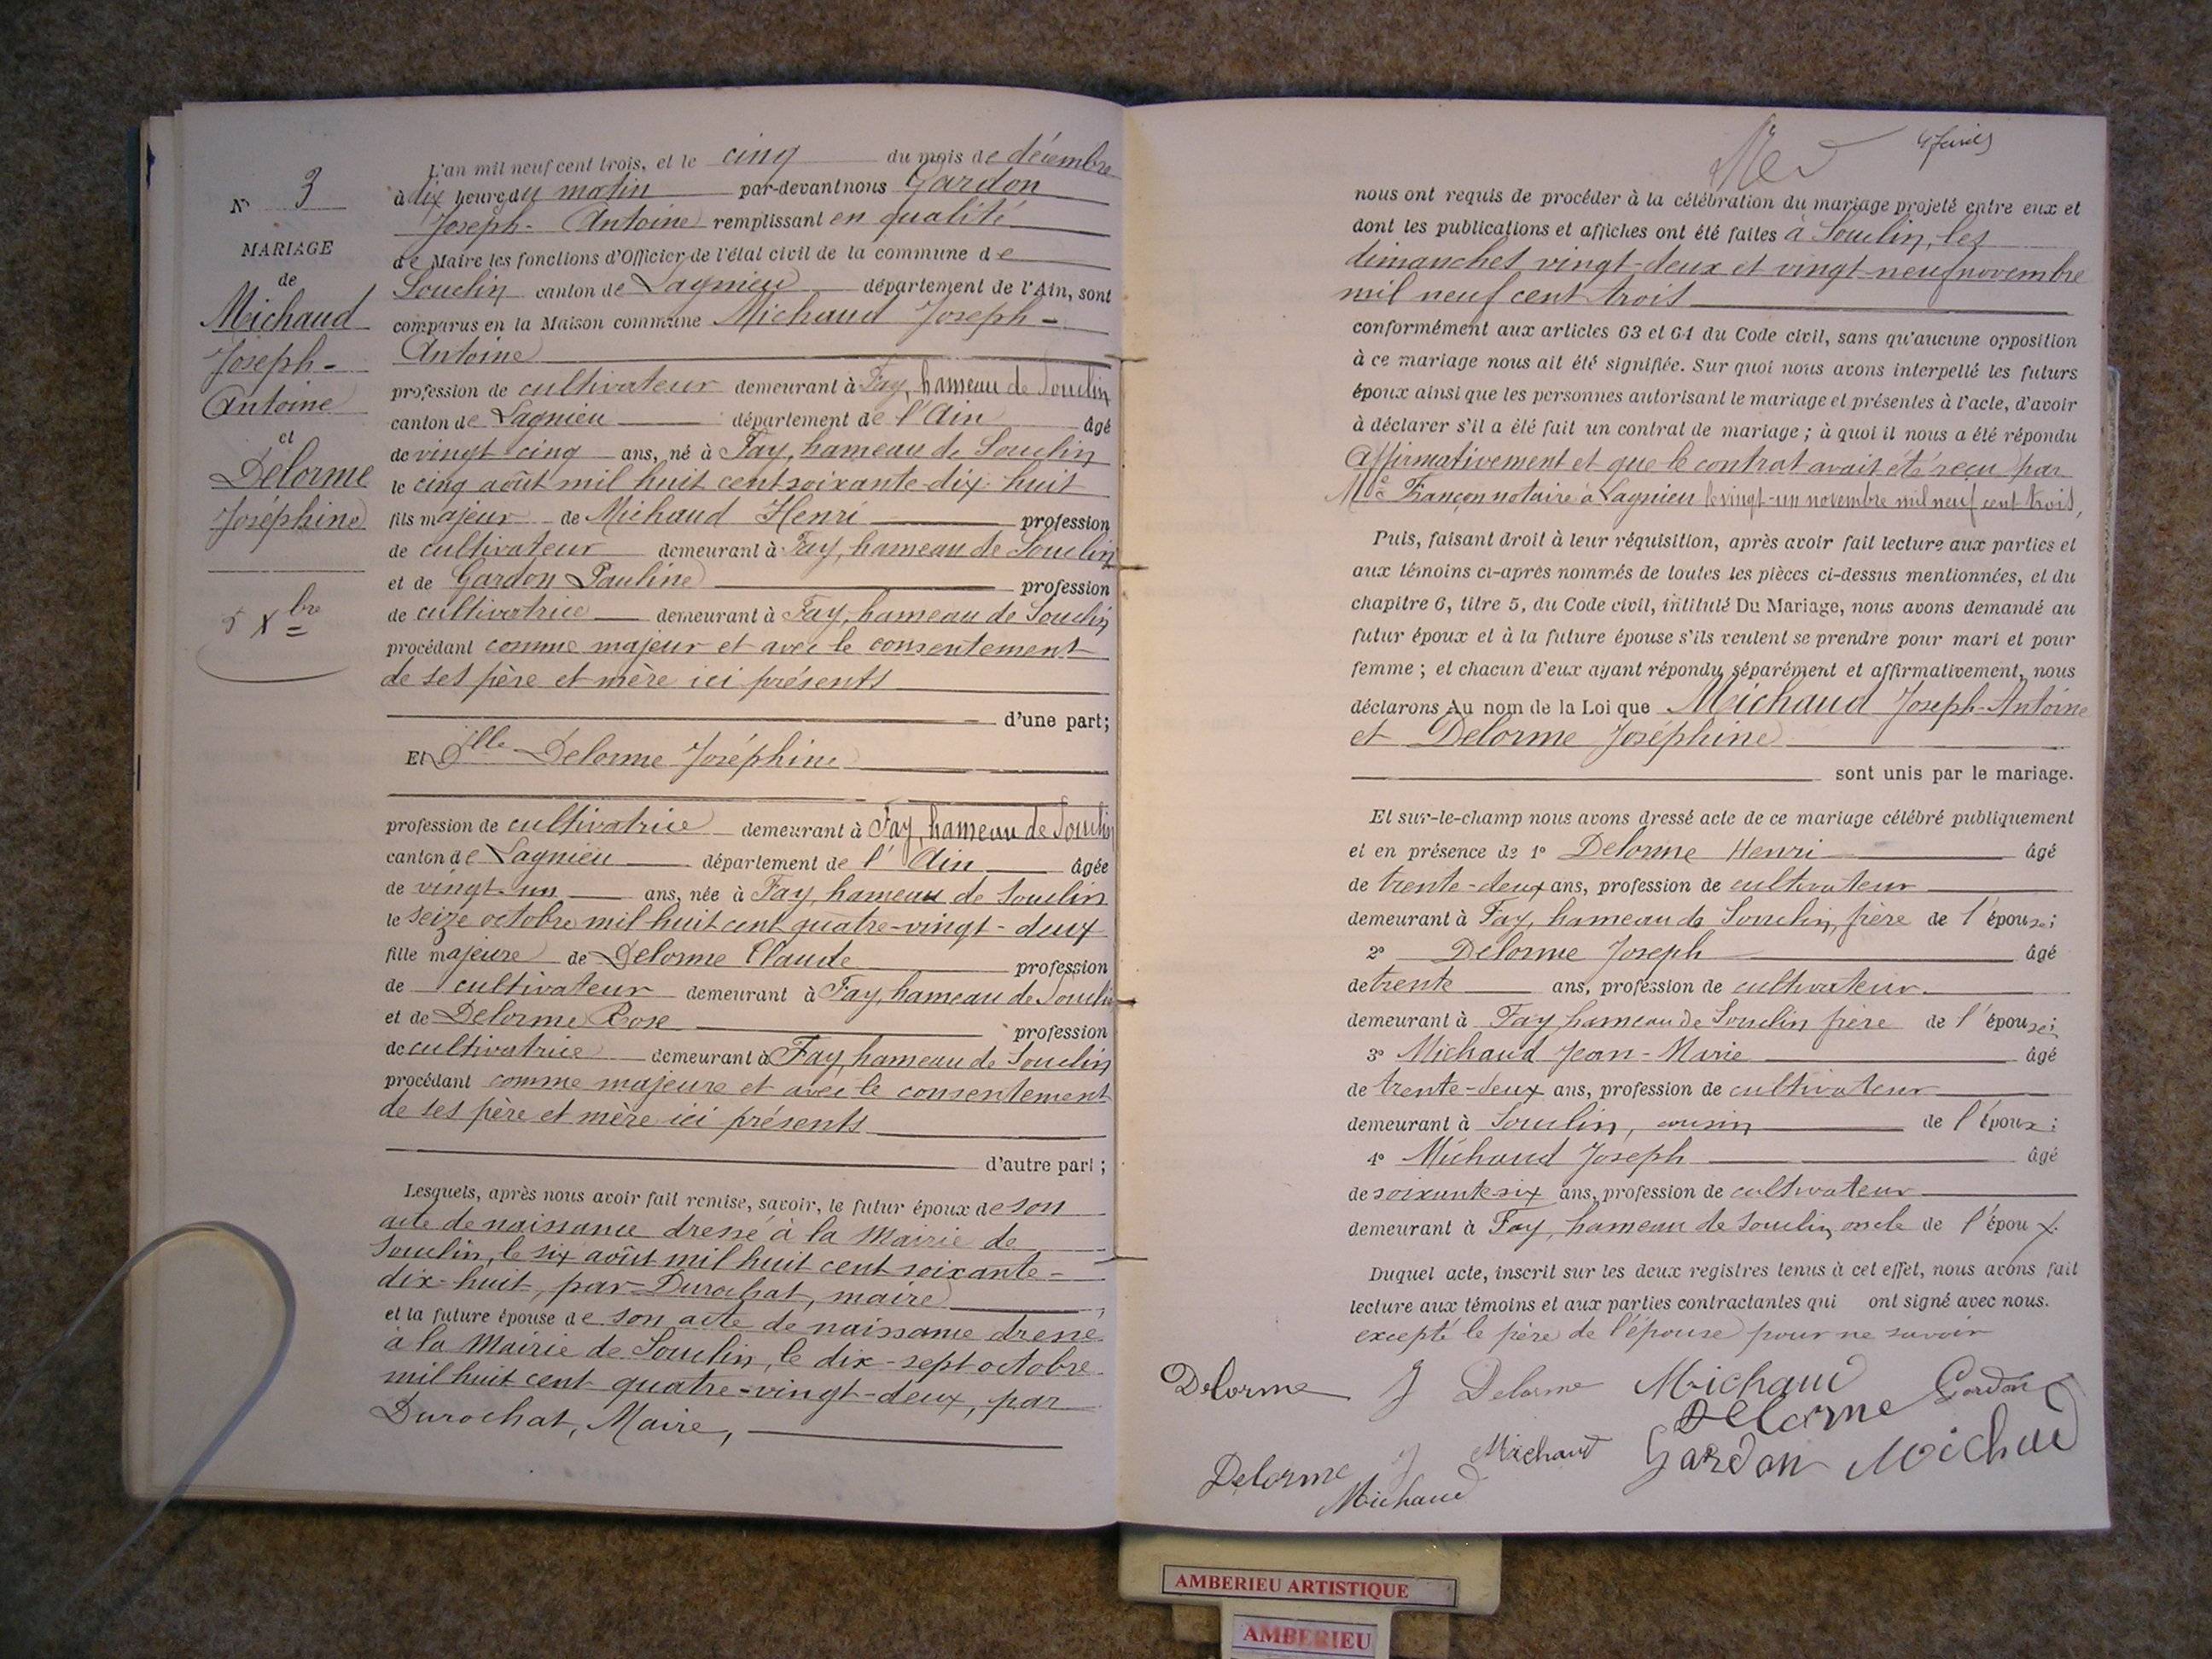 N° 3
MARIAGE
de
Michaud
Joseph-
Antoine
et
Delorme
Joséphine
5 Xbre
L'an mil neuf cent trois, et le cinq du mois de décembre
à dix heures du matin par-devant nous Gardon
Joseph-Antoine remplissant en qualité
de Maire les fonctions d'Officier de l'état civil de la commune de
Souclin canton de Lagnieu département de l'Ain, sont
comparus en la Maison commune Michaud Joseph-
Antoine
profession de cultivateur demeurant à Fay, hameau de Souclin
canton de Lagnieu département de l'Ain âgé
de vingt cinq ans, né à Fay, hameau de Souclin
le cinq août mil huit cent soixante-dix-huit
fils majeur de Michaud Henri profession
de cultivateur demeurant à Fay, hameau de Souclin
et de Gardon Pauline profession
de cultivatrice demeurant à Fay, hameau de Souclin
procédant comme majeur et avec le consentement
de ses père et mère ici présents
d'une part;
Et Dlle Delorme Joséphine
profession de cultivatrice demeurant à Fay, hameau de Souclin
canton de Lagnieu département de l'Ain âgée
de vingt-un ans, née à Fay, hameau de Souclin
le seize octobre mil huit cent quatre-vingt-deux
fille majeure de Delorme Claude profession
de cultivateur demeurant à Fay, hameau de Souclin
et de Delorme Rose profession
de cultivatrice demeurant à Fay, hameau de Souclin
procédant comme majeure et avec le consentement
de ses père et mère ici présents
d'autre part;
Lesquels, après nous avoir fait remise, savoir, le futur époux de son
acte de naissance dressé à la Mairie de
Souclin, le six août mil huit cent soixante-
dix-huit, par Durochat, maire,
et la future épouse de son acte de naissance dressé
à la Mairie de Souclin, le dix-sept octobre
mil huit cent quatre-vingt-deux, par
Durochat, Maire,
nous ont requis de procéder à la célébration du mariage projeté entre eux et
dont les publications et affiches ont été faites à Souclin, les
dimanches vingt-deux et vingt-neuf novembre
mil neuf cent trois
conformément aux articles 63 et 64 du Code civil, sans qu'aucune opposition
à ce mariage nous ait été signifiée. Sur quoi nous avons interpellé les futurs
époux ainsi que les personnes autorisant le mariage et présentes à l'acte, d'avoir
à déclarer s'il a été fait un contrat de mariage; à quoi il nous a été répondu
Affirmativement et que le contrat avait été reçu par
Me Françon notaire à Lagnieu le vingt-un novembre mil neuf cent trois,
Puis, faisant droit à leur réquisition, après avoir fait lecture aux parties et
aux témoins ci-après nommés de toutes les pièces ci-dessus mentionnées, et du
chapitre 6, titre 5, du Code civil, intitulé Du Mariage, nous avons demandé au
futur époux et à la future épouse s'ils veulent se prendre pour mari et pour
femme; et chacun d'eux ayant répondu séparément et affirmativement, nous
déclarons Au nom de la Loi que Michaud Joseph-Antoine
et Delorme Joséphine
sont unis par le mariage.
Et sur-le-champ nous avons dressé acte de ce mariage célébré publiquement
et en présence de 1° Delorme Henri âgé
de trente-deux ans, profession de cultivateur
demeurant à Fay, hameau de Souclin, frère de l'épouse;
2° Delorme Joseph âgé
de trente ans, profession de cultivateur
demeurant à Fay hameau de Souclin frère de l'épouse;
3° Michaud Jean-Marie âgé
de trente-deux ans, profession de cultivateur
demeurant à Souclin, cousin de l'époux;
4° Michaud Joseph âgé
de soixante-six ans, profession de cultivateur
demeurant à Fay, hameau de Souclin, oncle de l'époux.
Duquel acte, inscrit sur les deux registres tenus à cet effet, nous avons fait
lecture aux témoins et aux parties contractantes qui ont signé avec nous.
excepté le père de l'épouse pour ne savoir
Delorme J Delorme Michaud Gardon
Delorme
Delorme J Michaud Gardon Michaud
Michaud
AMBERIEU ARTISTIQUE
AMBERIEU